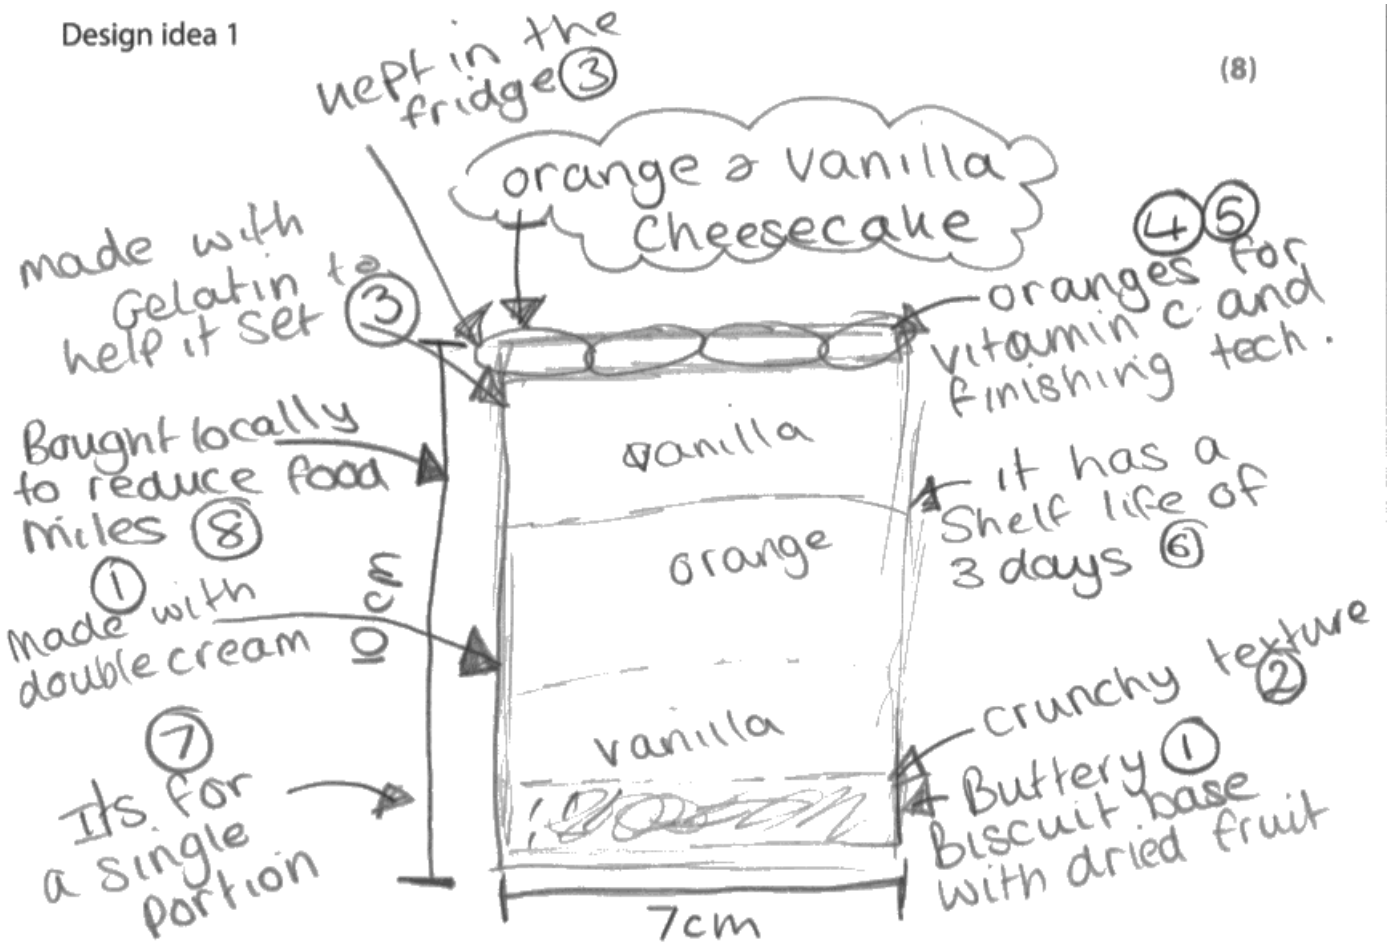 Design idea 1
(8)
kept in the
fridge ③
orange & vanilla
cheesecake
made with
Gelatin to
help it set ③
④ ⑤
oranges for
vitamin c and
finishing tech.
Bought locally
to reduce food
miles ⑧
vanilla
it has a
shelf life of
3 days ⑥
orange
①
made with
double cream
10 cm
crunchy texture
②
vanilla
Buttery ①
Biscuit base
with dried fruit
⑦
Its for
a single
portion
7cm